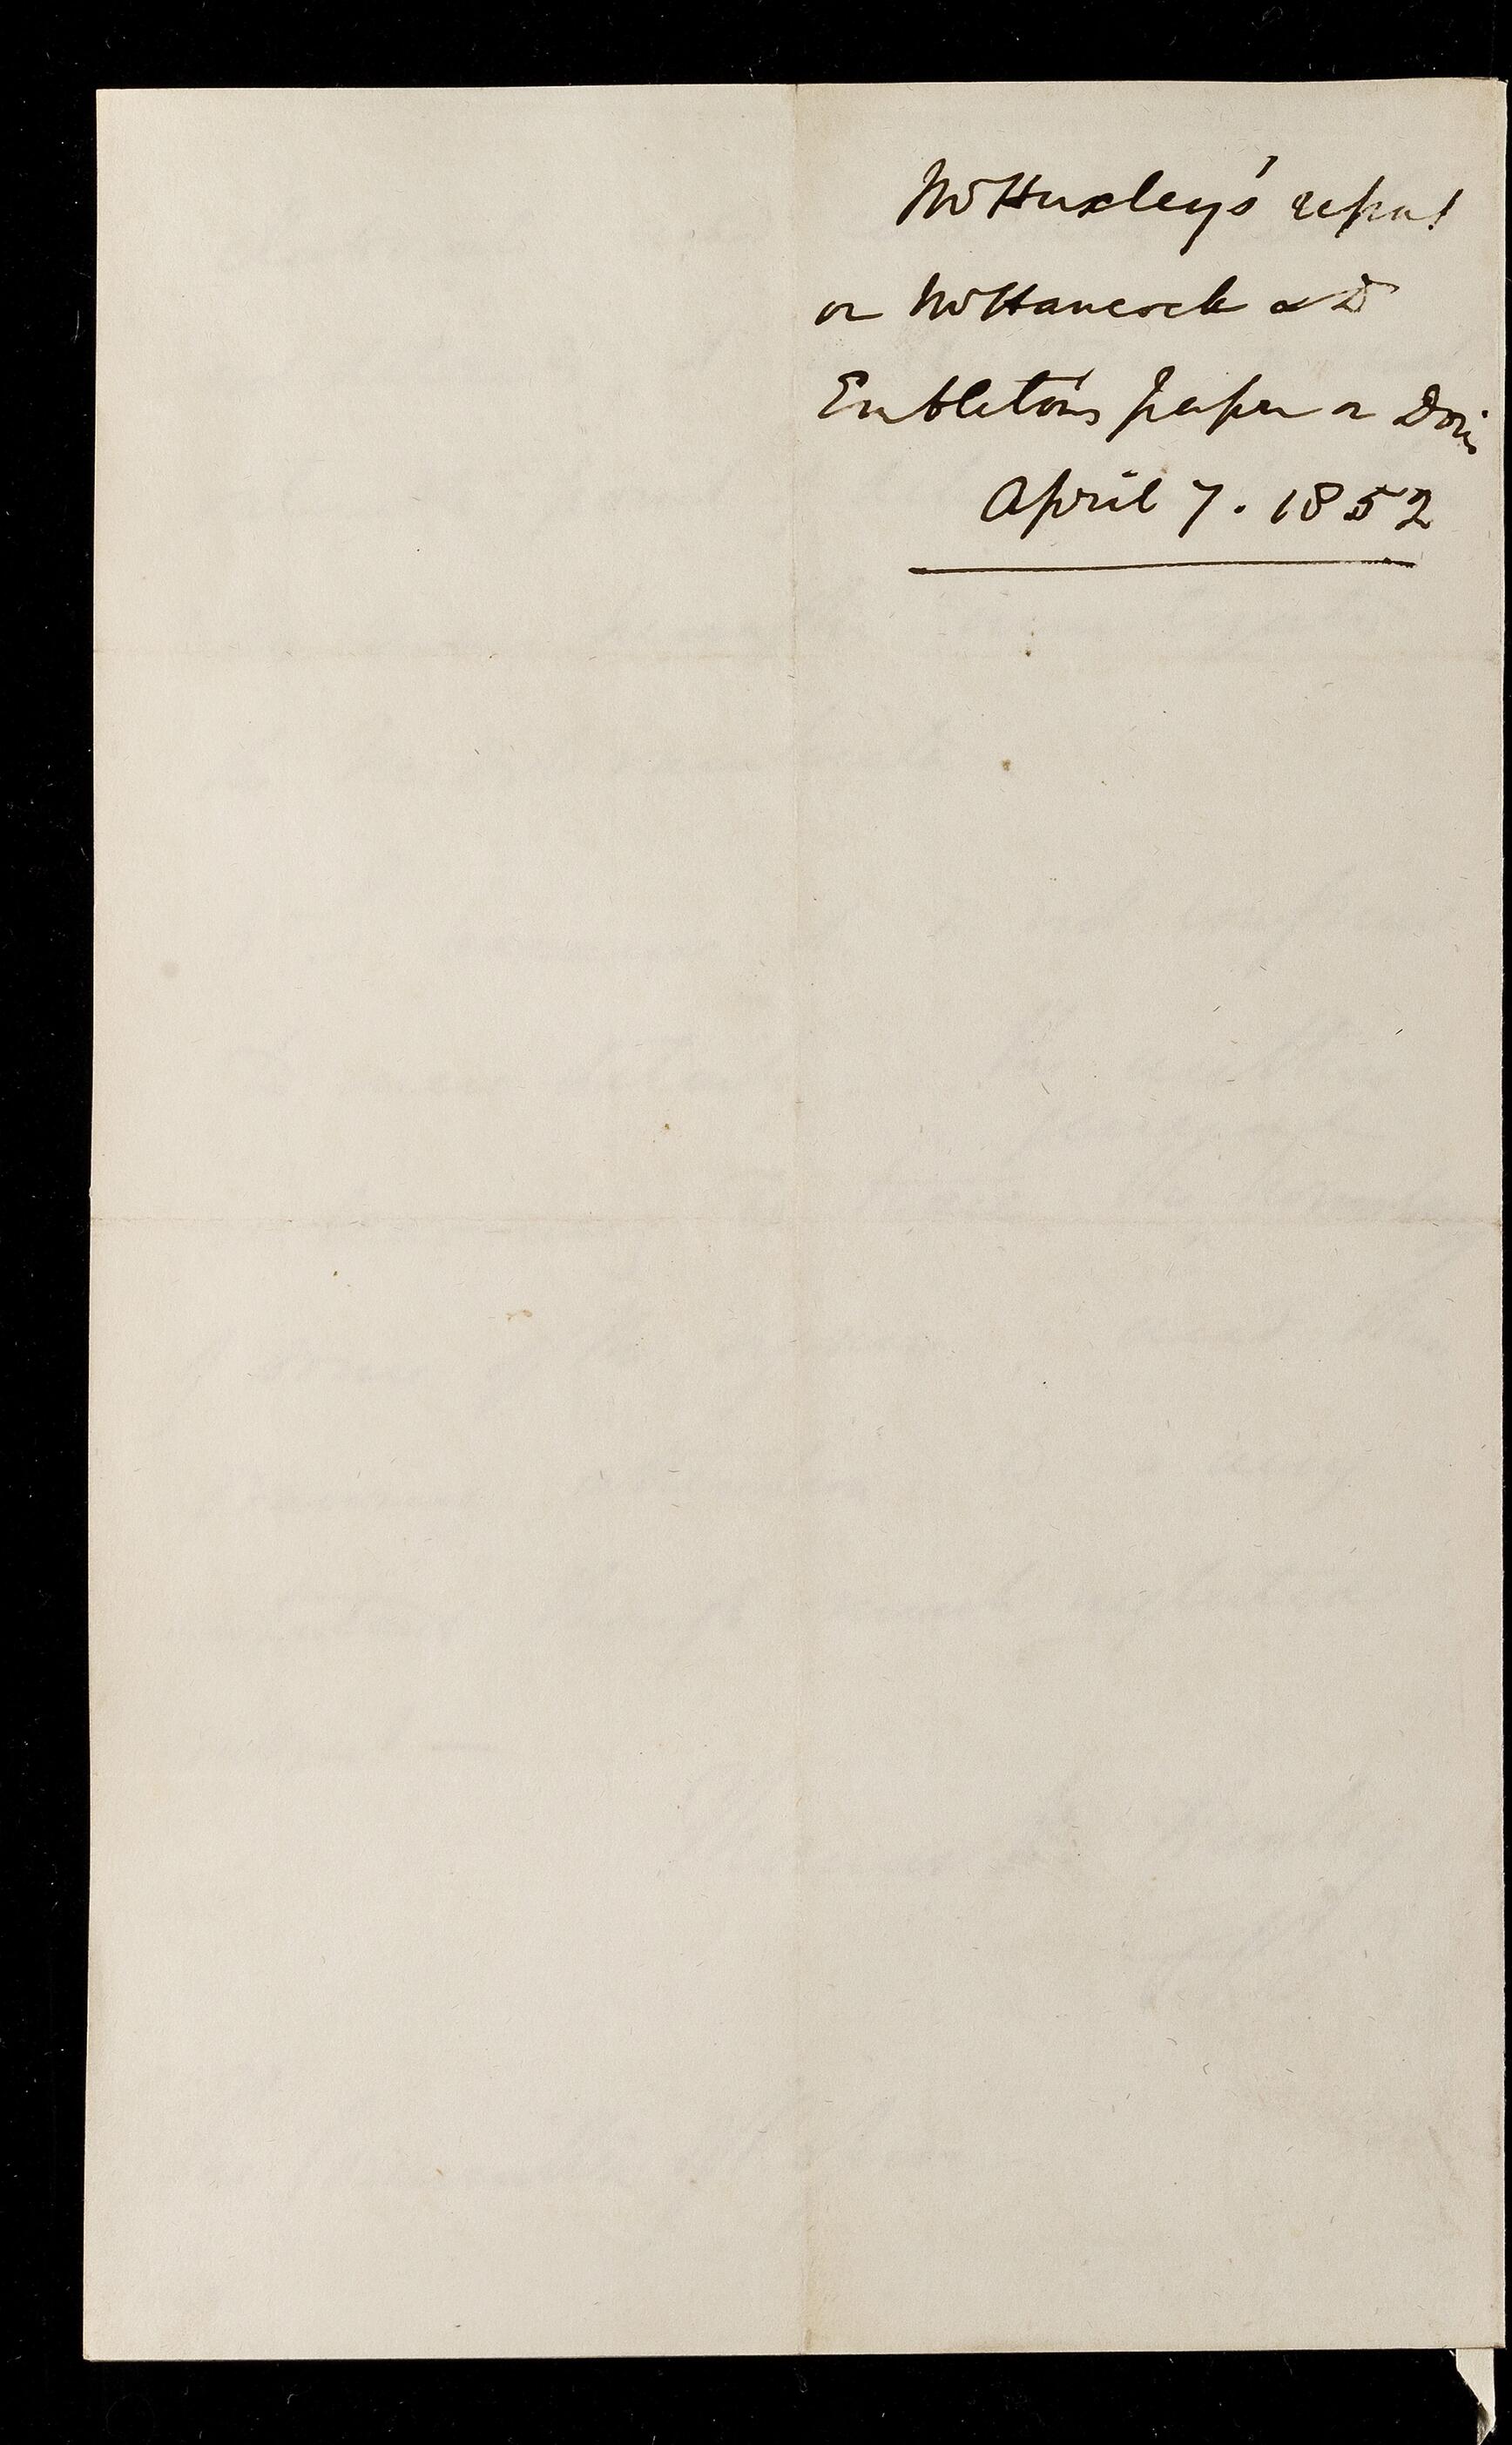 Mr Huxley's report
on Mr Hancock & Dr
Embleton's paper on Doris
April 7. 1852